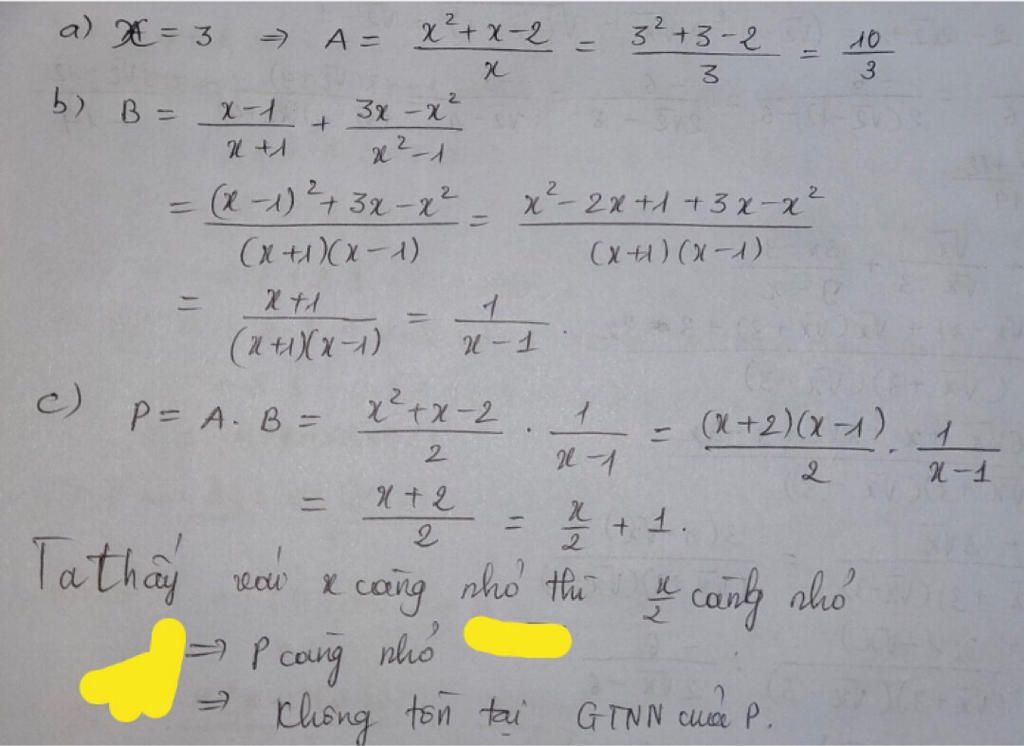 a) x = 3 ⇒ A = (x² + x - 2)/x = (3² + 3 - 2)/3 = 10/3
b) B = (x - 1)/(x + 1) + (3x - x²)/(x² - 1)
= ((x - 1)² + 3x - x²)/((x + 1)(x - 1)) = (x² - 2x + 1 + 3x - x²)/((x + 1)(x - 1))
= (x + 1)/((x + 1)(x - 1)) = 1/(x - 1).
c) P = A. B = (x² + x - 2)/2 . 1/(x - 1) = ((x + 2)(x - 1))/2 . 1/(x - 1)
= (x + 2)/2 = x/2 + 1.
Ta thấy với x càng nhỏ thì x/2 càng nhỏ
⇒ P càng nhỏ
⇒ Không tồn tại GTNN của P.